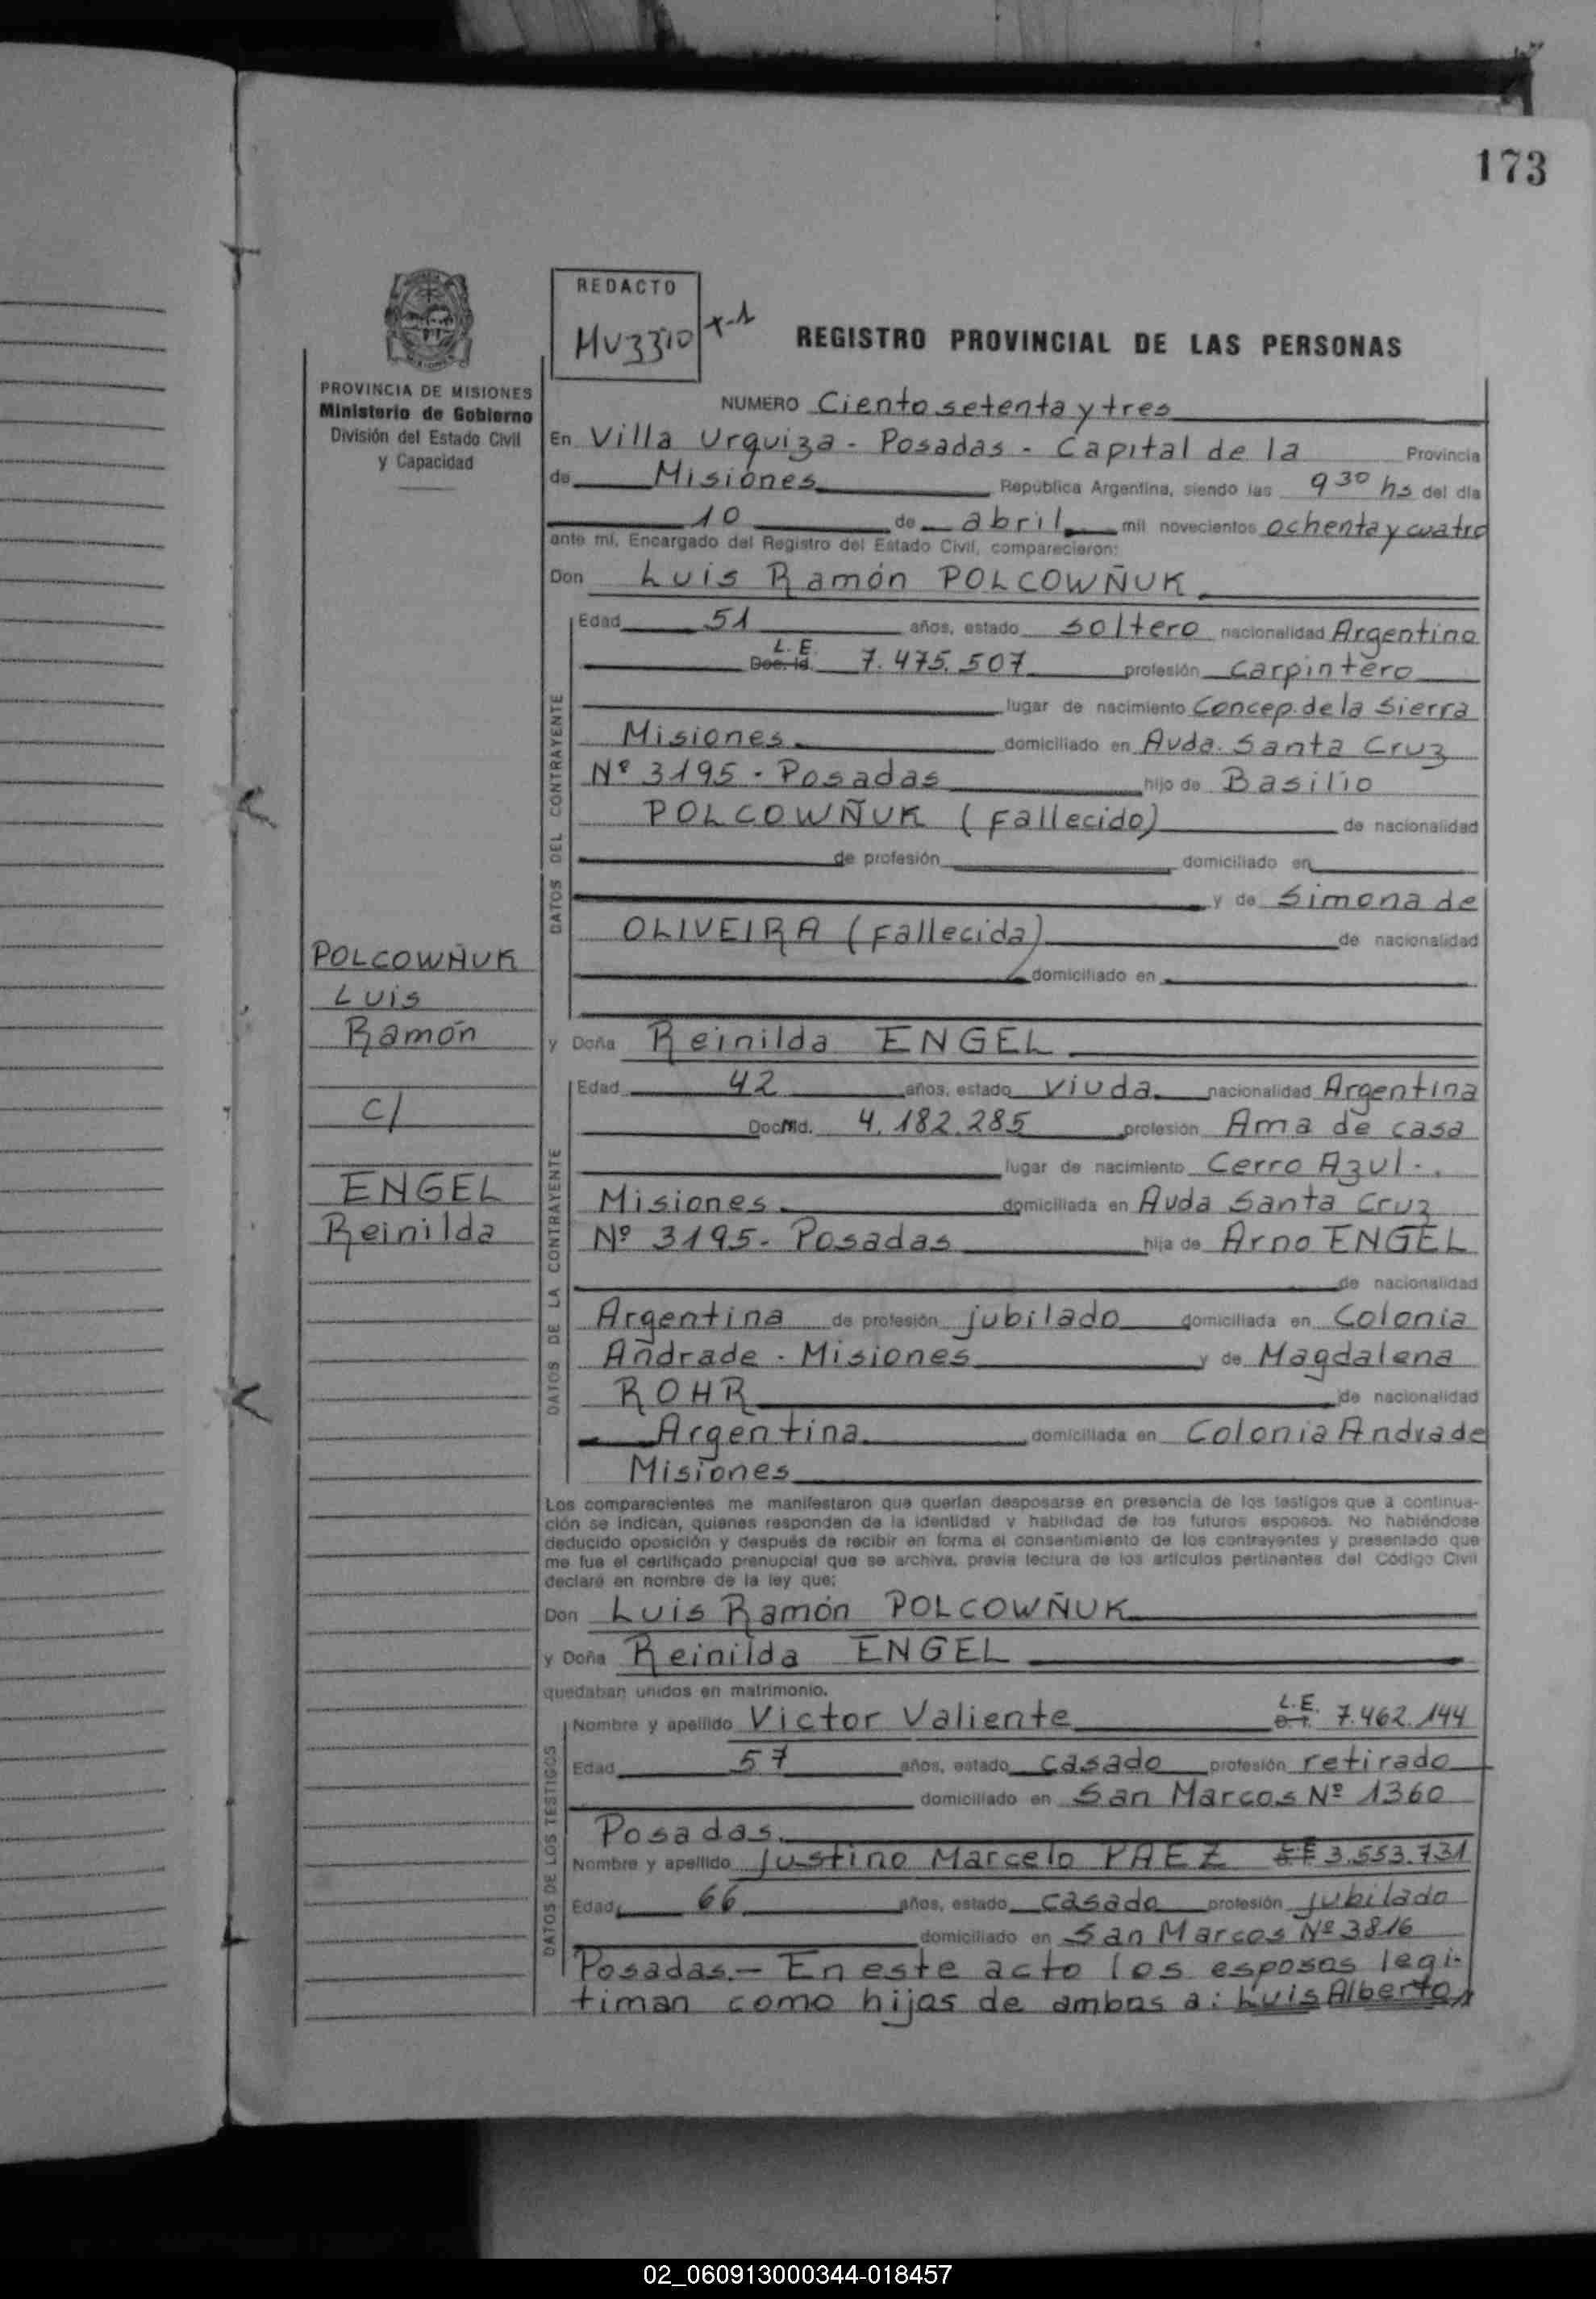 173
REDACTO
MUZZIO
x-1
REGISTRO PROVINCIAL DE LAS PERSONAS
PROVINCIA DE MISIONES
Ministerio de Gobierno
División del Estado Civil
y Capacidad
NUMERO Ciento setenta y tres
En Villa Urquiza - Posadas - Capital de la Provincia
de Misiones República Argentina, siendo las 9 30 hs del día
10 de abril mil novecientos ochenta y cuatro
ante mí, Encargado del Registro del Estado Civil, comparecieron:
Don Luis Ramón POLCOWÑUK
DATOS DEL CONTRAYENTE
Edad 51 años, estado soltero nacionalidad Argentina
L.E.
Doc. Id. 7.475.507 profesión carpintero
lugar de nacimiento Concep. de la Sierra
Misiones domiciliado en Avda. Santa Cruz
Nº 3195 - Posadas hijo de Basilio
POLCOWÑUK (Fallecido) de nacionalidad
de profesión domiciliado en
y de Simona de
OLIVEIRA (Fallecida) de nacionalidad
domiciliado en
POLCOWÑUK
Luis
Ramón
c/
ENGEL
Reinilda
y Doña Reinilda ENGEL
DATOS DE LA CONTRAYENTE
Edad 42 años, estado viuda nacionalidad Argentina
Doc. Id. 4.182.285 profesión Ama de casa
lugar de nacimiento Cerro Azul -.
Misiones domiciliada en Avda Santa Cruz
Nº 3195 - Posadas hija de Arno ENGEL
de nacionalidad
Argentina de profesión jubilado domiciliada en Colonia
Andrade - Misiones y de Magdalena
ROHR de nacionalidad
Argentina domiciliada en Colonia Andrade
Misiones
Los comparecientes me manifestaron que querían desposarse en presencia de los testigos que a continua-
ción se indican, quienes responden de la identidad y habilidad de los futuros esposos. No habiéndose
deducido oposición y después de recibir en forma el consentimiento de los contrayentes y presentado que
me fue el certificado prenupcial que se archiva, previa lectura de los artículos pertinentes del Código Civil
declaré en nombre de la ley que:
Don Luis Ramón POLCOWÑUK
y Doña Reinilda ENGEL
quedaban unidos en matrimonio.
DATOS DE LOS TESTIGOS
Nombre y apellido Victor Valiente L.E. 7.462.144
Edad 57 años, estado casado profesión retirado
domiciliado en San Marcos Nº 1360
Posadas.
Nombre y apellido Justino Marcelo PAEZ LE 3.553.731
Edad 66 años, estado casado profesión jubilado
domiciliado en San Marcos Nº 3816
Posadas.- En este acto los esposos legi-
timan como hijos de ambos a: Luis Alberto,
02_060913000344-018457